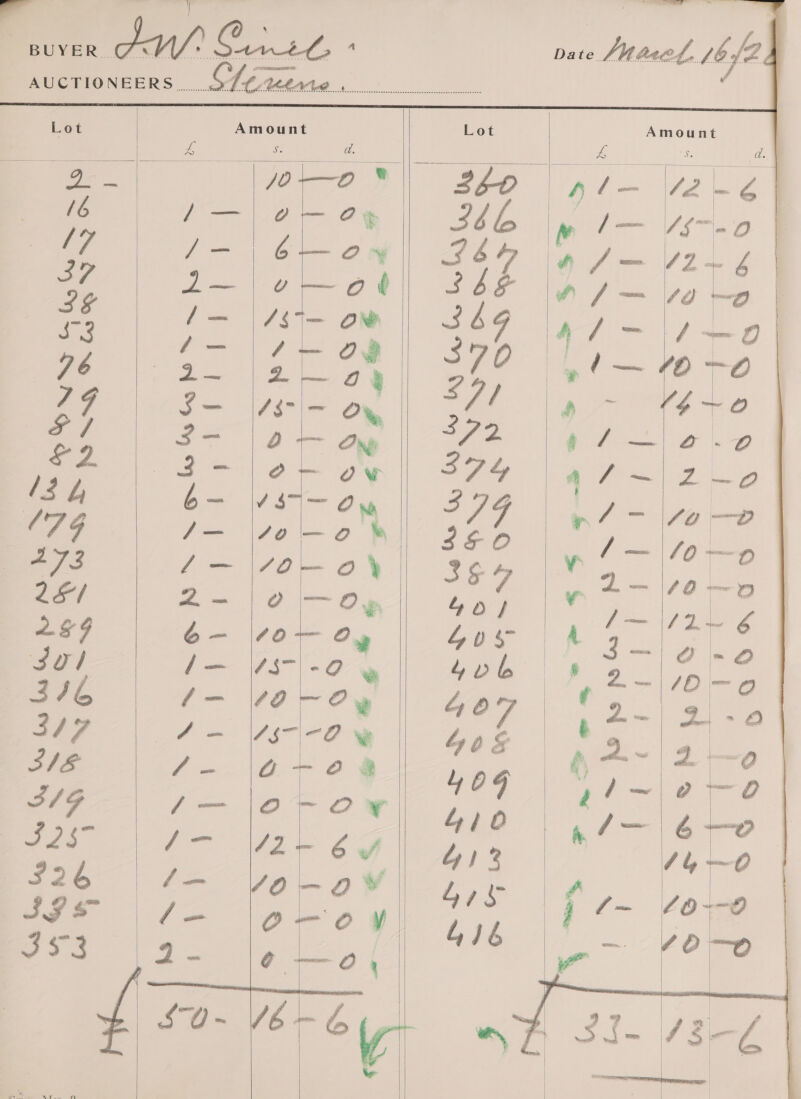 BUYER J.W. Sinel
Date March 16/2
AUCTIONEERS Stevens.
Lot Amount
£ s. d.
2 - 10 - 0
16 1 - 0 - 0
17 1 - 6 - 0
37 2 - 0 - 0
38 1 - 15 - 0
53 1 - 1 - 0
76 2 - 2 - 0
79 3 - 15 - 0
81 3 - 0 - 0
82 3 - 0 - 0
134 6 - 15 - 0
179 1 - 10 - 0
273 1 - 10 - 0
281 2 - 0 - 0
289 6 - 10 - 0
301 1 - 15 - 0
316 1 - 10 - 0
317 1 - 15 - 0
318 1 - 0 - 0
319 1 - 0 - 0
325 1 - 12 - 6
326 1 - 10 - 0
335 1 - 0 - 0
353 2 - 0 - 0
£ 50 - 16 - 6
Lot Amount
£ s. d.
360 1 - 12 - 6
366 1 - 15 - 0
367 1 - 12 - 6
368 1 - 10 - 0
369 1 - 1 - 0
370 1 - 10 - 0
371 - 14 - 0
372 1 - 0 - 0
374 1 - 2 - 0
379 1 - 10 - 0
380 1 - 10 - 0
387 2 - 10 - 0
401 1 - 12 - 6
405 3 - 0 - 0
406 2 - 10 - 0
407 2 - 2 - 0
408 2 - 2 - 0
409 1 - 0 - 0
410 1 - 6 - 0
413 14 - 0
415 1 - 10 - 0
416 - 10 - 0
£ 33 - 13 - 6